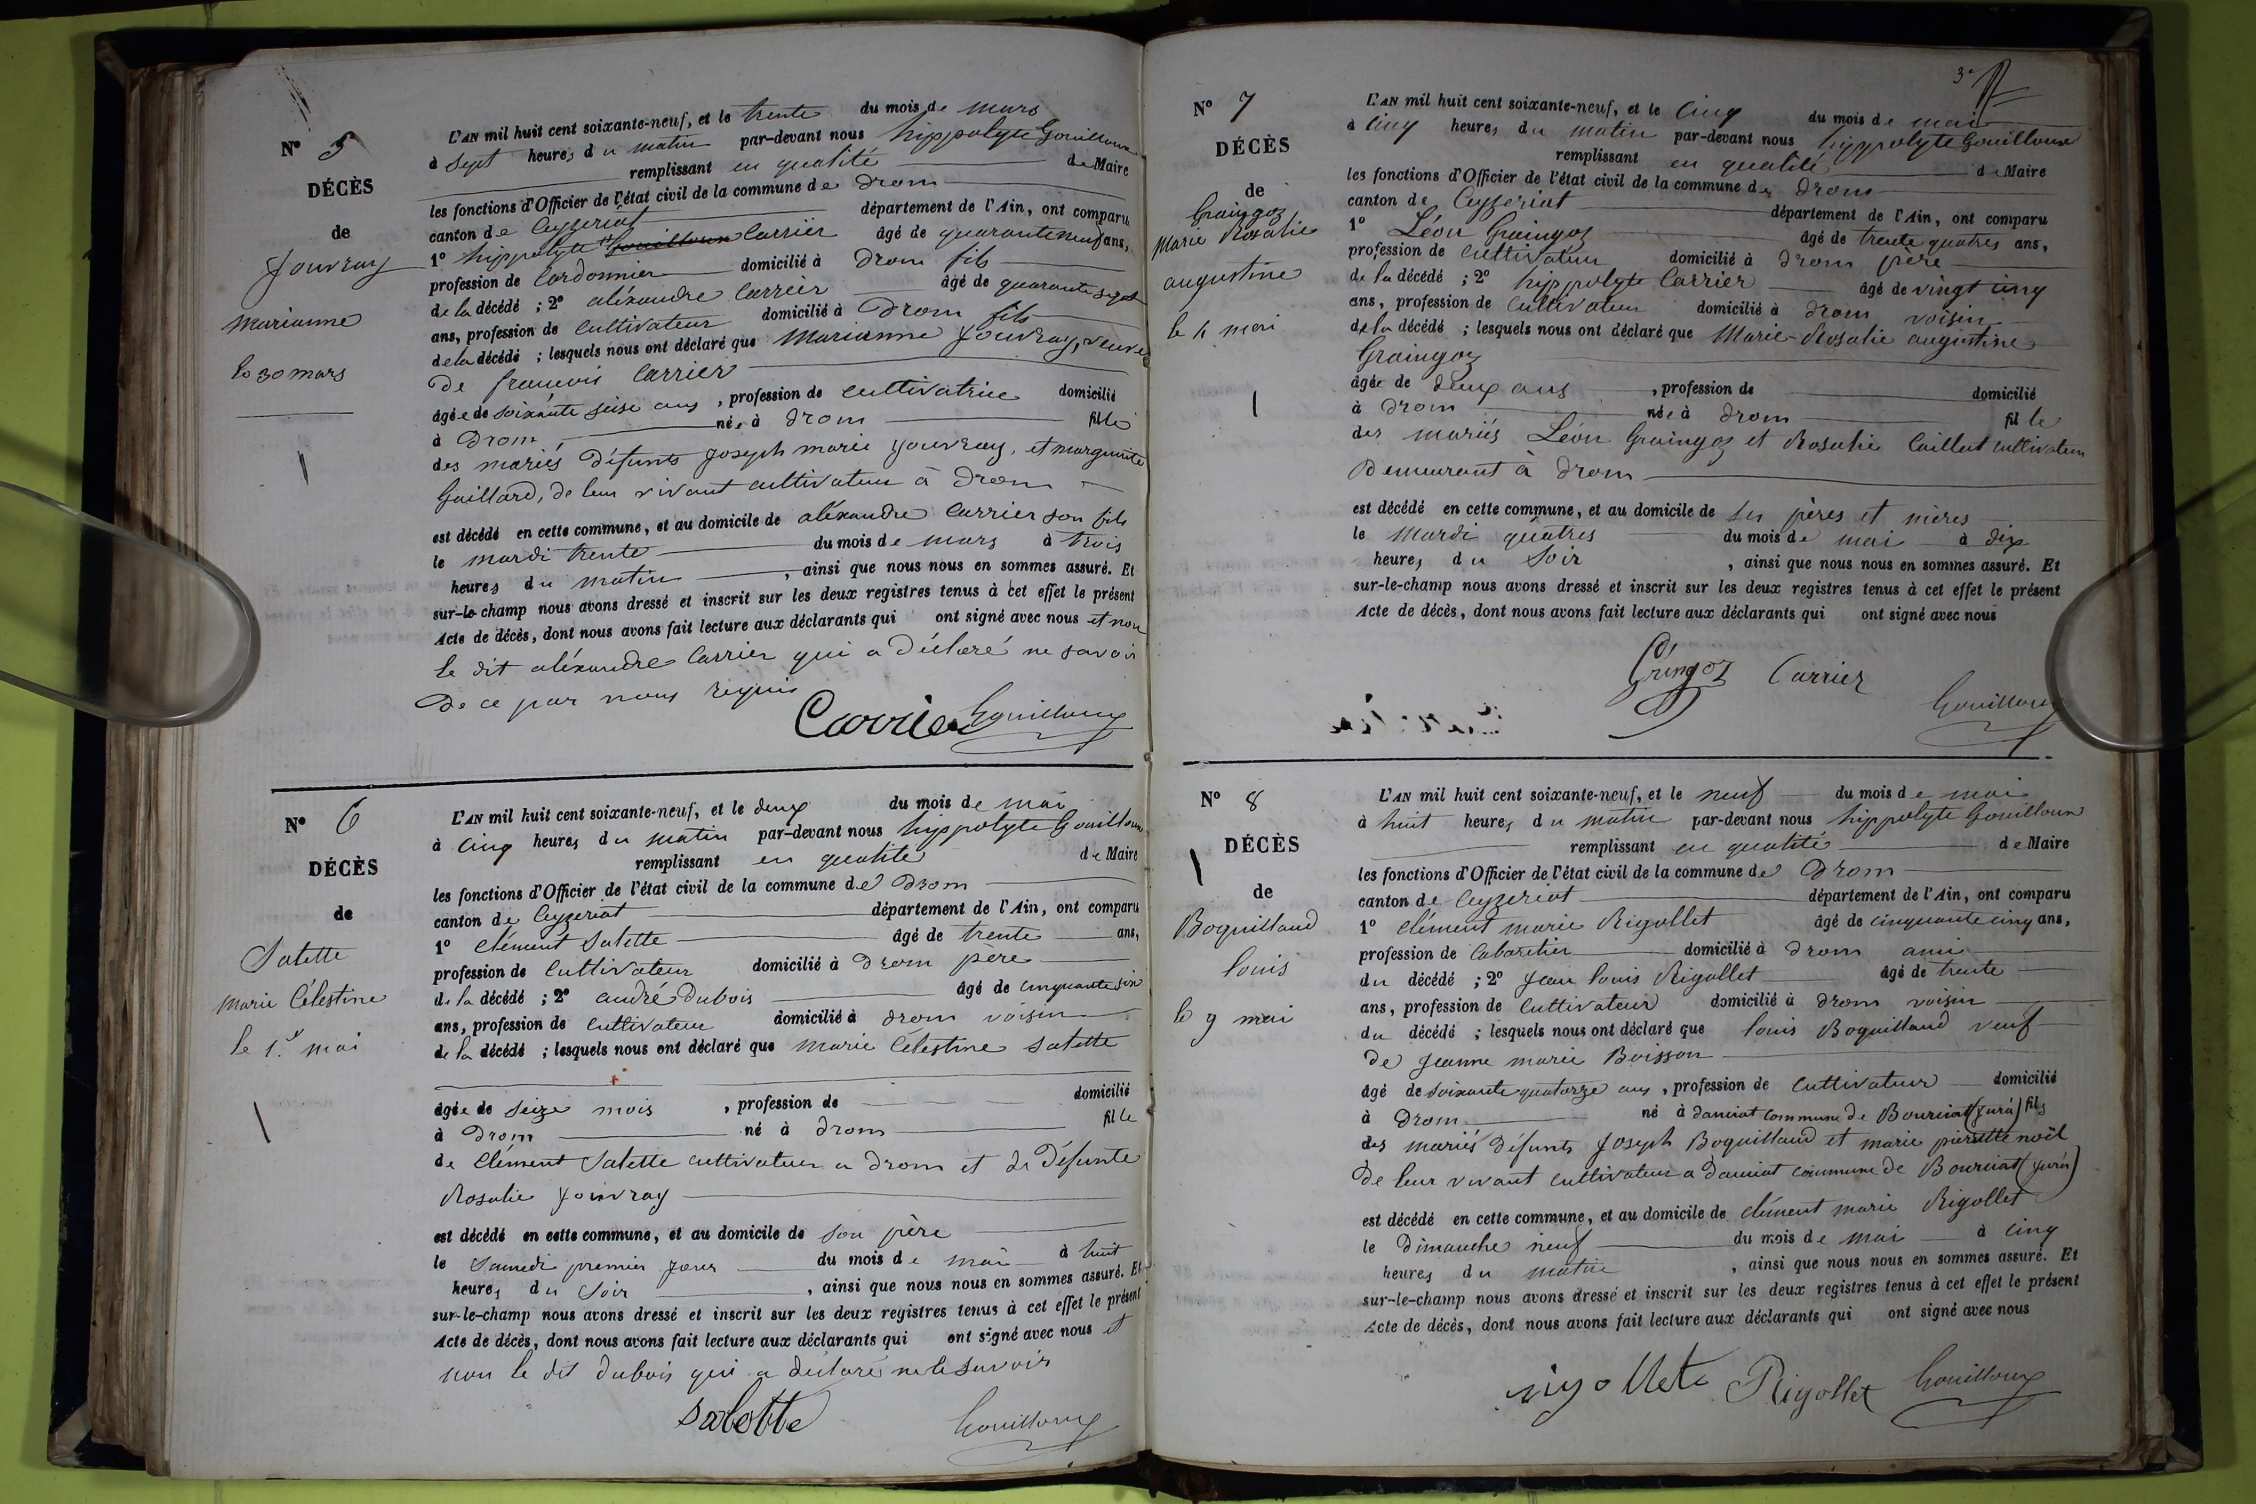 N° 5
DÉCÈS
de
Jouvray
Marianne
le 30 mars
L'AN mil huit cent soixante-neuf, et le trente du mois de mars
à sept heures du matin par-devant nous hippolyte Gouilloux
remplissant en qualité de Maire
les fonctions d'Officier de l'état civil de la commune de Drom
canton de Ceyzeriat département de l'Ain, ont comparu
1° hippolyte Gouilloux Carrier âgé de quarante neuf ans,
profession de Cordonnier domicilié à Drom fils
de la décédé ; 2° aléxandre Carrier âgé de quarante sept
ans, profession de Cultivateur domicilié à Drom fils
de la décédé ; lesquels nous ont déclaré que Marianne Jouvray, veuve
de françois Carrier
âgée de soixante seise ans, profession de cultivatrice domicilié
à Drom, née à Drom fille
des mariés défunts Joseph marie Jouvray, et marguerite
Gaillard, de leur vivant cultivateur à Drom
est décédé en cette commune, et au domicile de aléxandre Carrier son fils
le mardi trente du mois de mars à trois
heures du matin, ainsi que nous nous en sommes assuré. Et
sur-le-champ nous avons dressé et inscrit sur les deux registres tenus à cet effet le présent
Acte de décès, dont nous avons fait lecture aux déclarants qui ont signé avec nous et non
le dit aléxandre Carrier qui a déclaré ne savoir
de ce par nous requis
Carrier Gouilloux
N° 6
DÉCÈS
de
Salette
Marie Célestine
le 1er mai
L'AN mil huit cent soixante-neuf, et le deux du mois de mai
à cinq heures du matin par-devant nous hippolyte Gouilloux
remplissant en qualité de Maire
les fonctions d'Officier de l'état civil de la commune de Drom
canton de Ceyzeriat département de l'Ain, ont comparu
1° Clément Salette âgé de trente ans,
profession de Cultivateur domicilié à Drom père
de la décédé ; 2° andré Dubois âgé de cinquante six
ans, profession de Cultivateur domicilié à Drom voisin
de la décédé ; lesquels nous ont déclaré que Marie Célestine Salette
âgée de seize mois, profession de domicilié
à Drom né à Drom fille
de Clément Salette cultivateur a Drom et de Défunte
Rosalie Jouvray
est décédé en cette commune, et au domicile de son père
le Samedi premier jour du mois de mai à huit
heures du soir, ainsi que nous nous en sommes assuré. Et
sur-le-champ nous avons dressé et inscrit sur les deux registres tenus à cet effet le présent
Acte de décès, dont nous avons fait lecture aux déclarants qui ont signé avec nous et
non le dit Dubois qui a déclaré ne le savoir
Salette Gouilloux
3e
N° 7
DÉCÈS
de
Graingoz
Marie Rosalie
augustine
le 4 mai
L'AN mil huit cent soixante-neuf, et le cinq du mois de mai
à cinq heures du matin par-devant nous hyppolyte Gouilloux
remplissant en qualité de Maire
les fonctions d'Officier de l'état civil de la commune de Drom
canton de Ceyzeriat département de l'Ain, ont comparu
1° Léon Graingoz âgé de trente quatres ans,
profession de Cultivateur domicilié à Drom père
de la décédé ; 2° hyppolyte Carrier âgé de vingt cinq
ans, profession de Cultivateur domicilié à Drom voisin
de la décédé ; lesquels nous ont déclaré que Marie-Rosalie augustine
Graingoz
âgée de deux ans, profession de domicilié
à Drom née à Drom fille
des mariés Léon Graingoz et Rosalie Caillat cultivateur
demeurant à Drom
est décédé en cette commune, et au domicile de ses pères et mères
le Mardi quatres du mois de mai à dix
heures du Soir, ainsi que nous nous en sommes assuré. Et
sur-le-champ nous avons dressé et inscrit sur les deux registres tenus à cet effet le présent
Acte de décès, dont nous avons fait lecture aux déclarants qui ont signé avec nous
Gringoz Carrier Gouilloux
N° 8
DÉCÈS
de
Boquilland
louis
le 9 mai
L'AN mil huit cent soixante-neuf, et le neuf du mois de mai
à huit heures du matin par-devant nous hippolyte Gouilloux
remplissant en qualité de Maire
les fonctions d'Officier de l'état civil de la commune de Drom
canton de Ceyzeriat département de l'Ain, ont comparu
1° Clément marie Rigollet âgé de cinquante cinq ans,
profession de Cabaretier domicilié à Drom ami
du décédé ; 2° Jean louis Rigollet âgé de trente
ans, profession de Cultivateur domicilié à Drom voisin
du décédé ; lesquels nous ont déclaré que louis Boquilland veuf
de Jeanne marie Boisson
âgé de soixante quatorze ans, profession de Cultivateur domicilié
à Drom né à Dancia commune de Bourcia (jura) fils
des mariés défunts Joseph Boquilland et marie pierrette noël
de leur vivant cultivateur a commune de Bourciat (jura)
est décédé en cette commune, et au domicile de clément marie Rigollet
le Dimanche neuf du mois de mai à cinq
heures du matin, ainsi que nous nous en sommes assuré. Et
sur-le-champ nous avons dressé et inscrit sur les deux registres tenus à cet effet le présent
Acte de décès, dont nous avons fait lecture aux déclarants qui ont signé avec nous
rigollet Rigollet Gouilloux